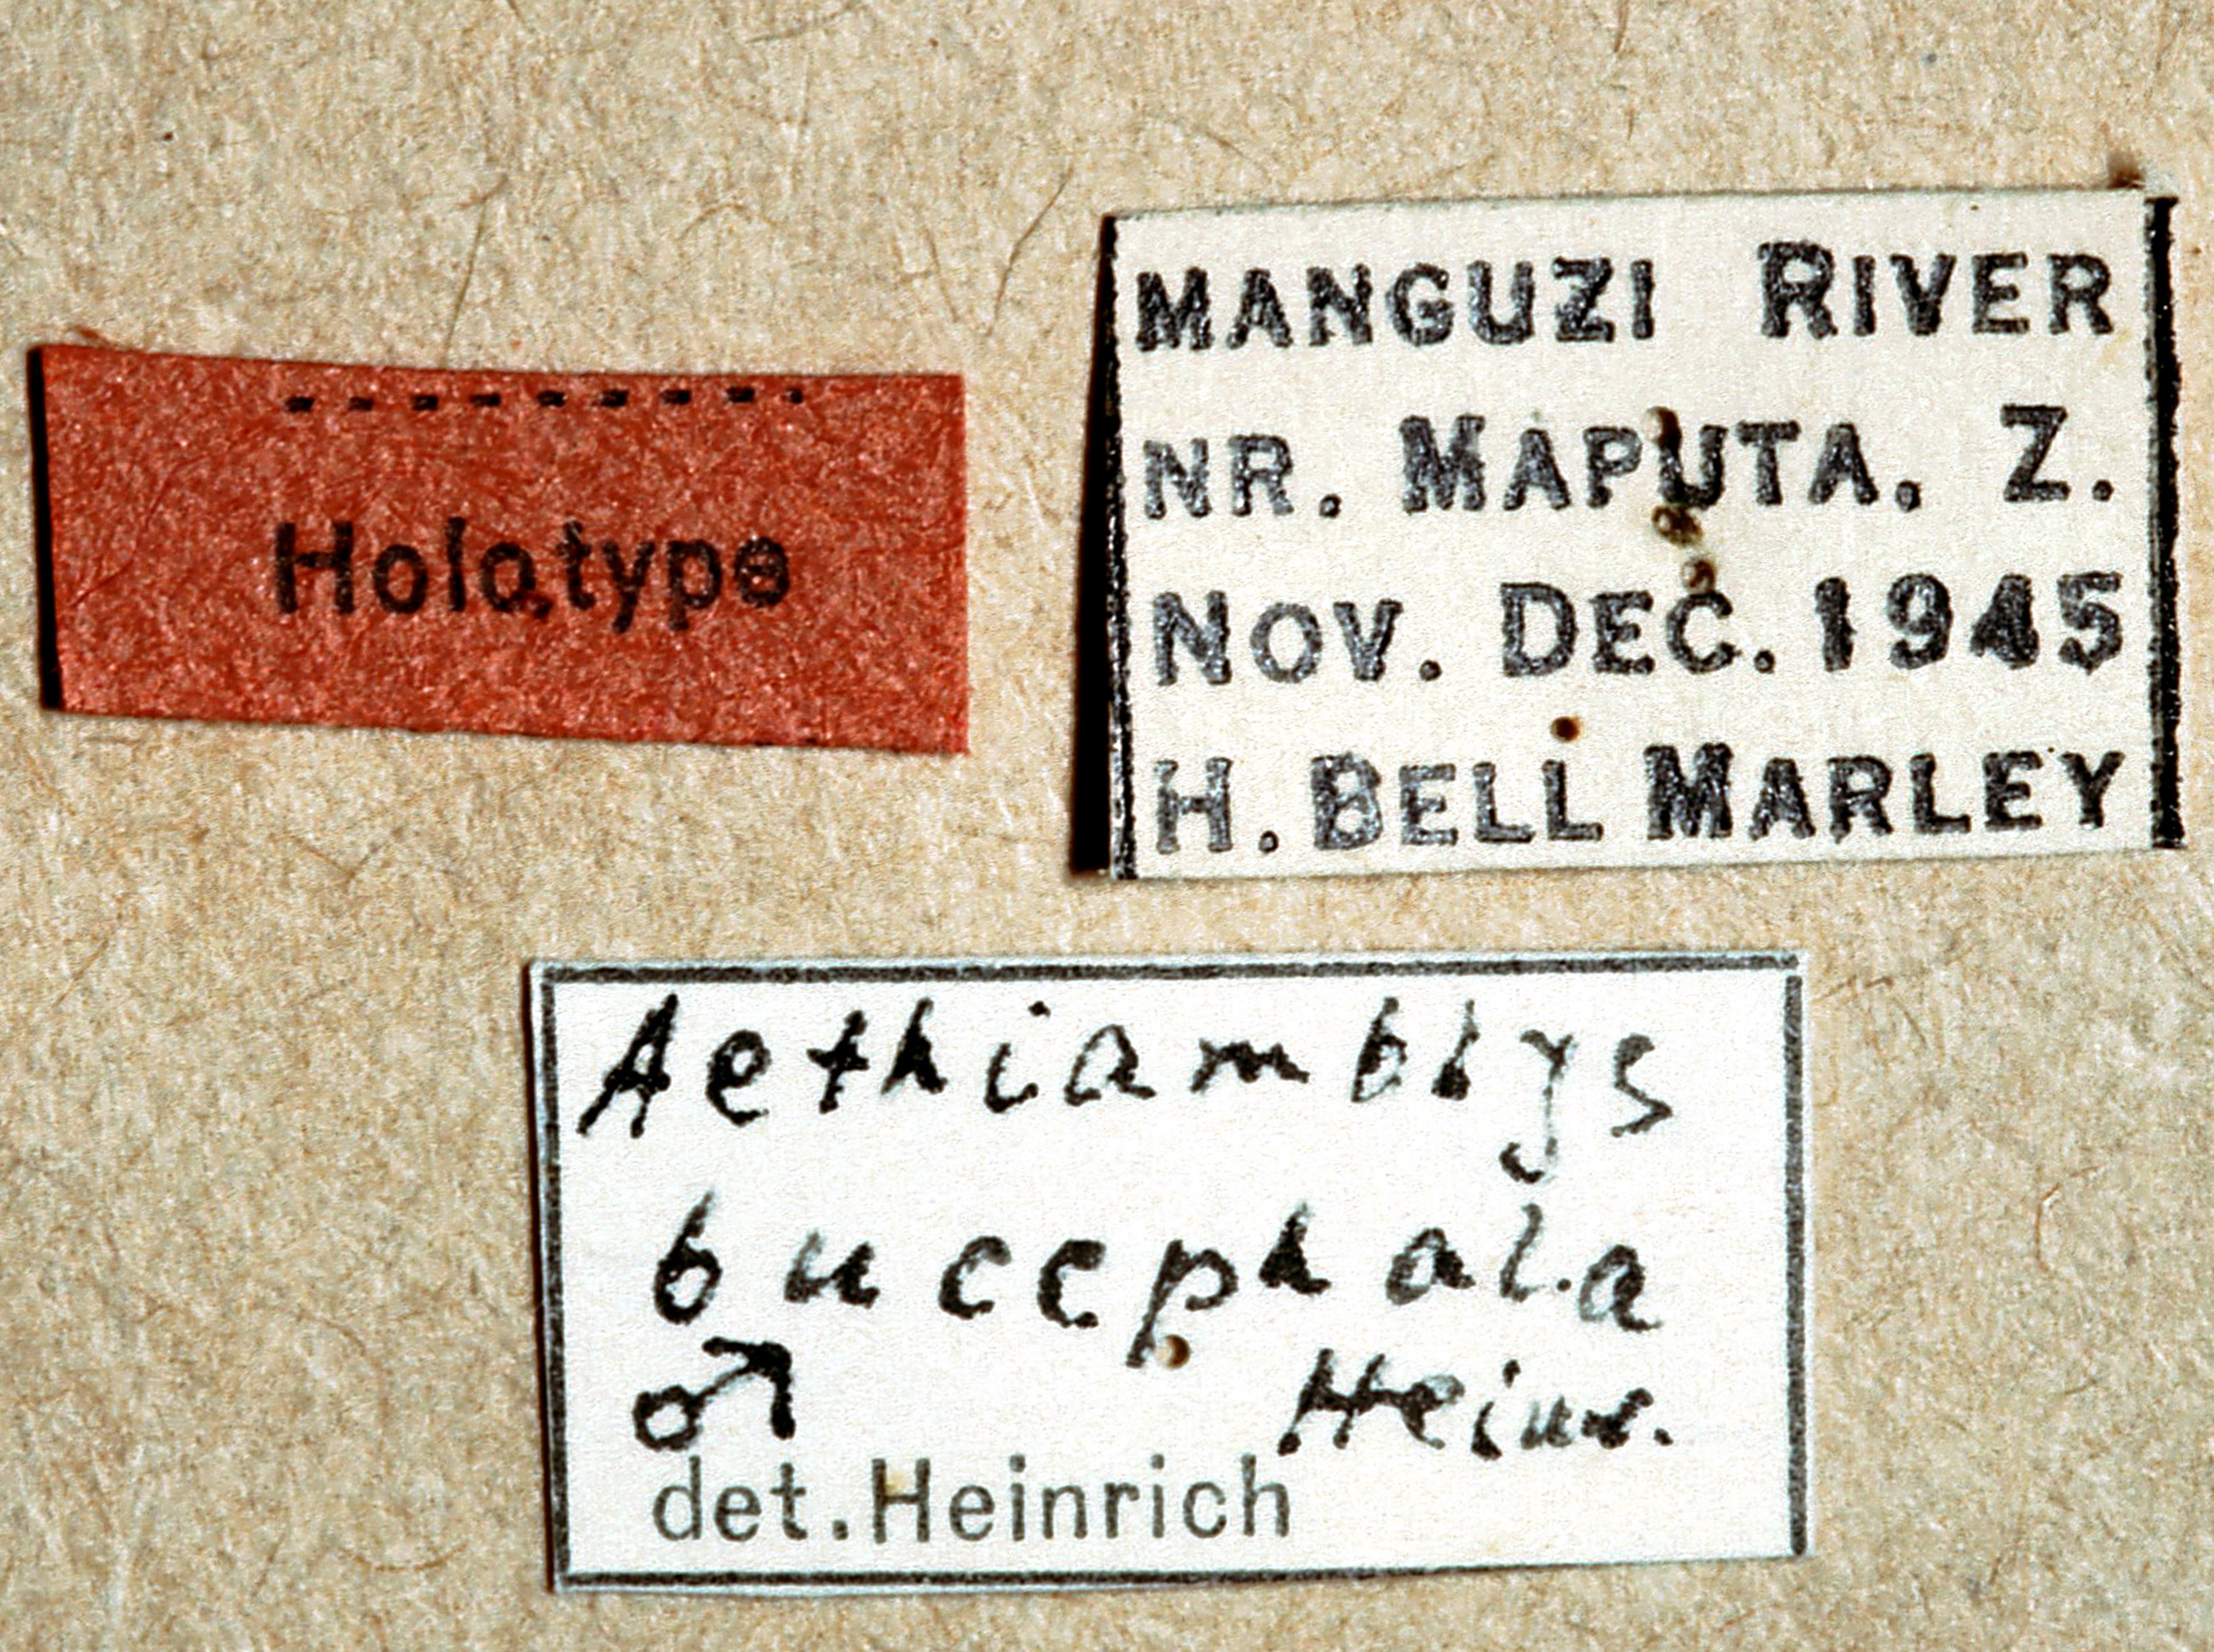 Holotype
MANGUZI RIVER
NR. MAPUTA, Z.
NOV. DEC. 1945
H. BELL MARLEY
Aethiamblys
bucephala
♂ Heinr.
det. Heinrich